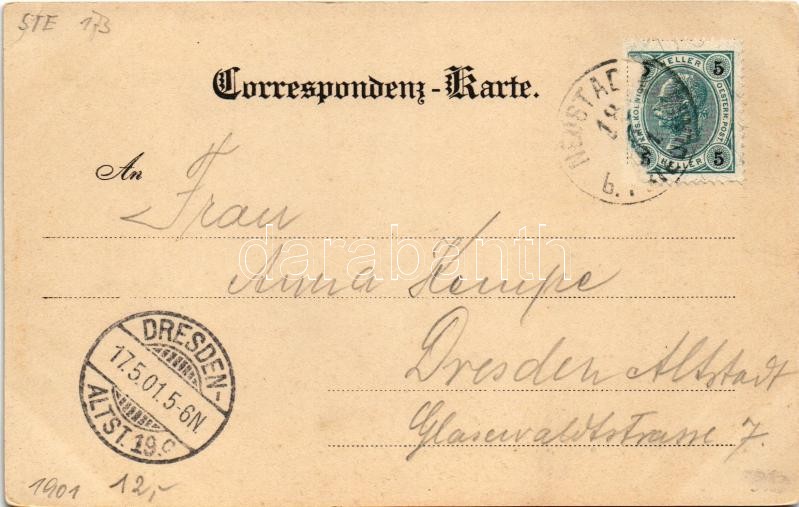 STE 173
Correspondenz-Karte.
5 HELLER 5
OESTERR. POST
5 HELLER 5
NEUSTAD
18
b.
An
Frau
darabanth
Anna Kempe
Dresden Altstadt
Glasewaldtstrasse 7.
DRESDEN-
17.5.01.5-6N
ALTST.19.c
1901 12,-